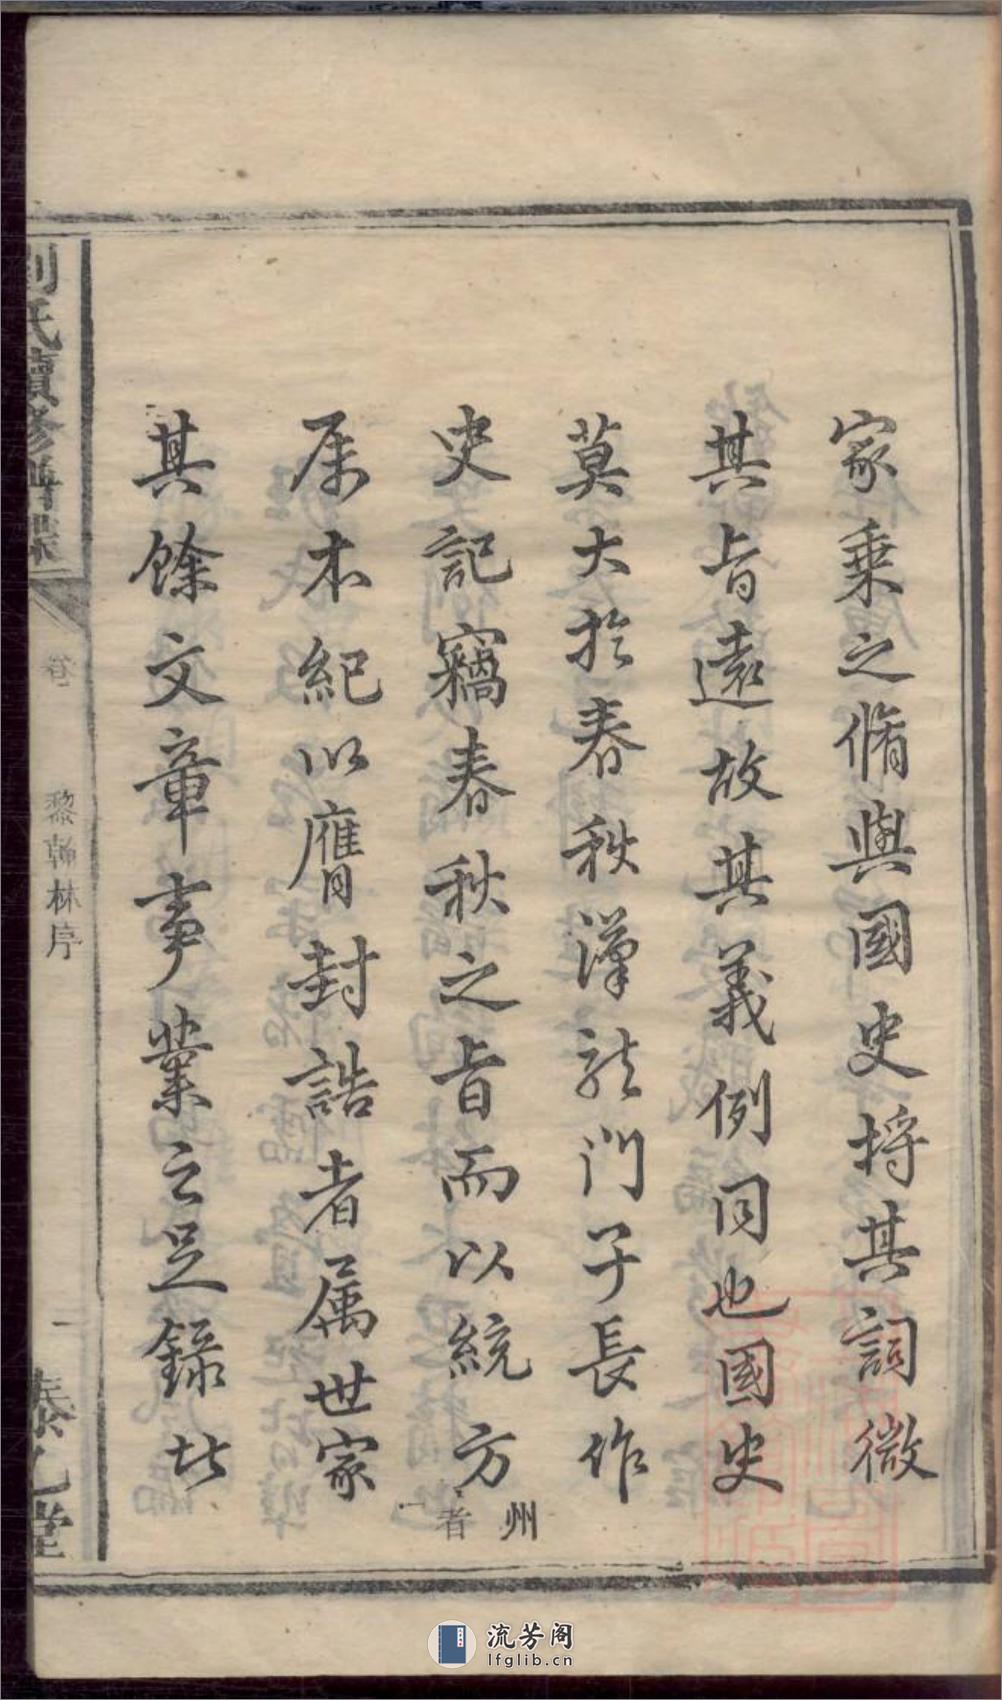 家乗之脩與國史埒其詞微
其㫖遠故其義例同也國史
莫大於春秋漢龍門子長作
史記竊春秋之㫖而以統方
州者
属本紀以膺封誥者属世家
其餘文章事業之足録者
劉氏續修譜牒
卷一
黎翰林序
一
藜乙堂
流芳阁
lfglib.cn